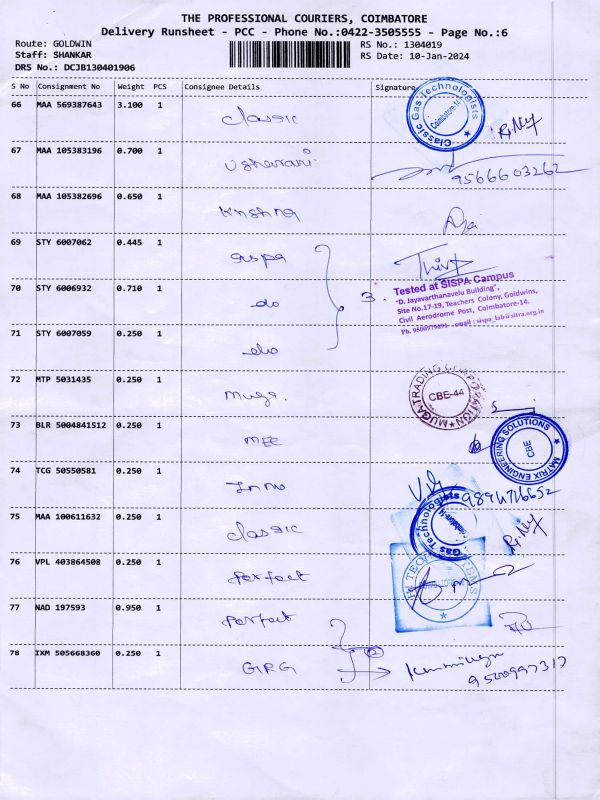 THE PROFESSIONAL COURIERS, COIMBATORE
Delivery Runsheet - PCC - Phone No.:0422-3505555 - Page No.:6
Route: GOLDWIN RS No.: 1304019
Staff: SHANKAR RS Date: 10-Jan-2024
DRS No.: DCJB130401906
S No Consignment No Weight PCS Consignee Details Signature
66 MAA 569387643 3.100 1 classic Classic Gas Technologists Coimbatore-14
67 MAA 105383196 0.700 1 9566603262
68 MAA 105382696 0.650 1 Krishna
69 STY 6007062 0.445 1 sispa
70 STY 6006932 0.710 1 do 3.
Tested at SISPA Campus
"D. Jayavarthanavelu Building",
Site No.17-19, Teachers Colony, Goldwins,
Civil Aerodrome Post, Coimbatore-14.
71 STY 6007059 0.250 1 do
72 MTP 5031435 0.250 1 muga. MUGA TRADING CORPORATION CBE-44
73 BLR 5004841512 0.250 1 MEE MATRIX ENGINEERING SOLUTIONS CBE
74 TCG 50550581 0.250 1
75 MAA 100611632 0.250 1 classic Gas Technologists
76 VPL 403864508 0.250 1 perfect
77 NAD 197593 0.950 1 perfect
78 IXM 505668360 0.250 1 GRG